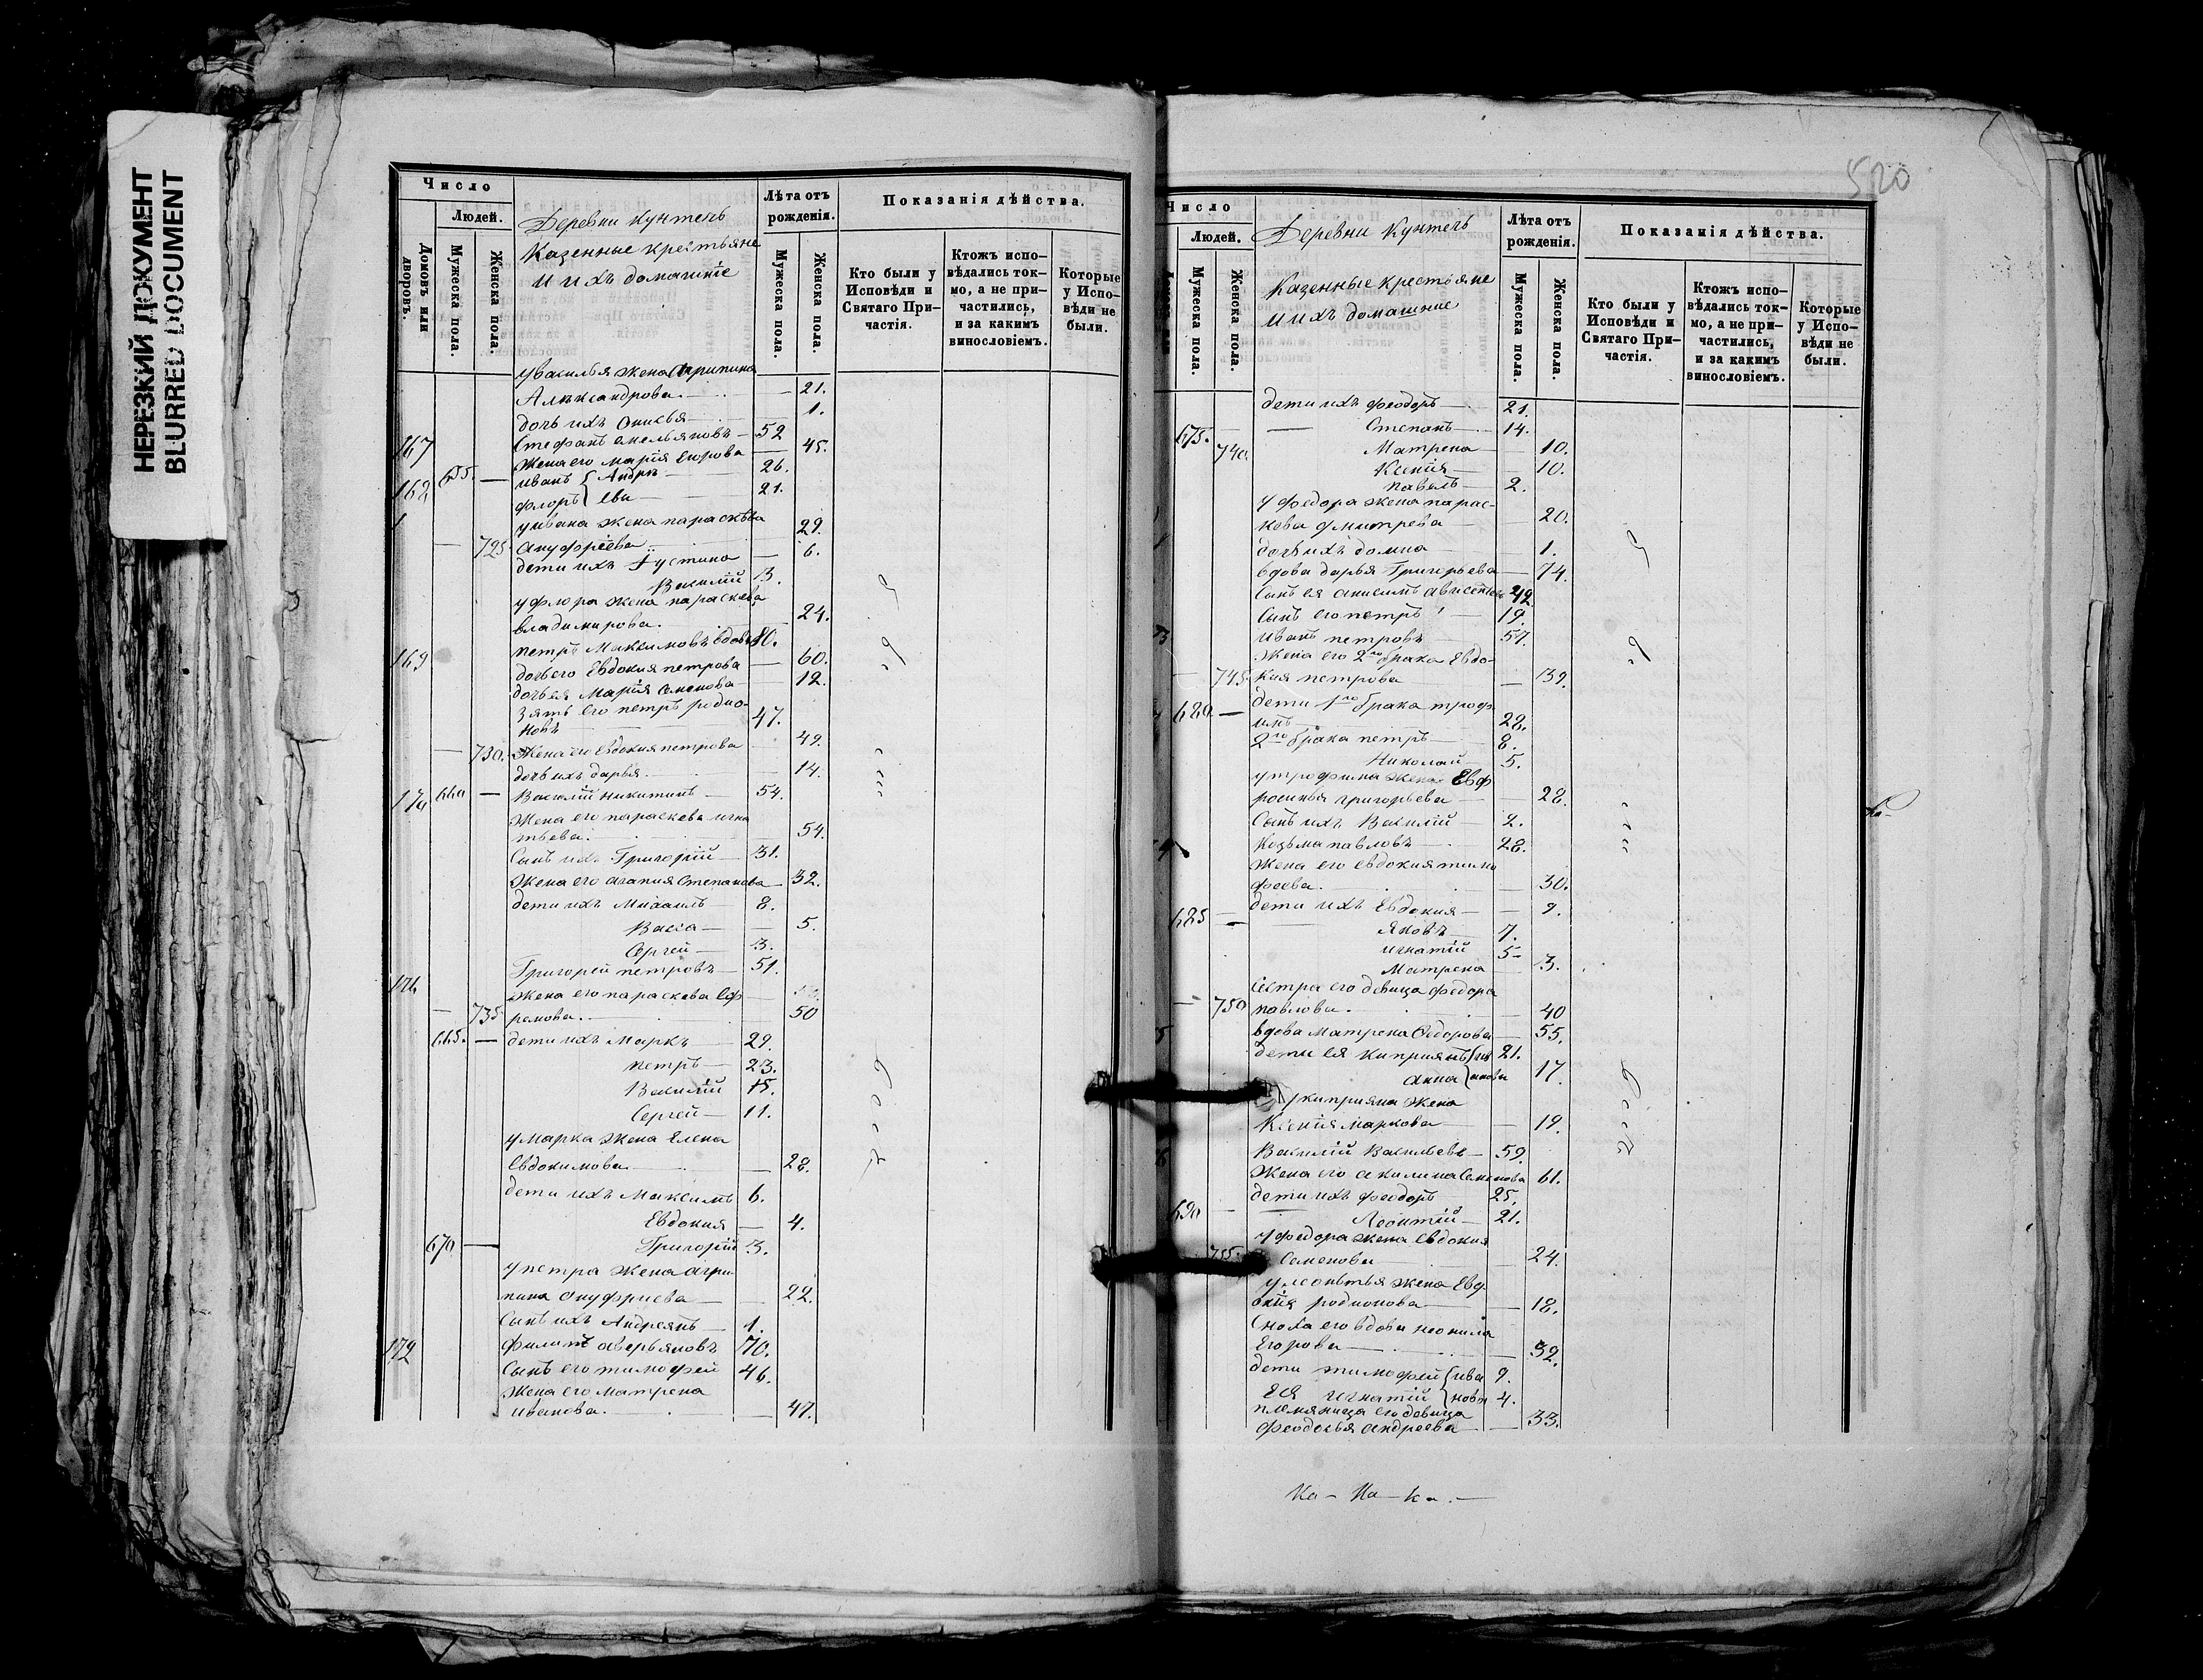 НЕРЕЗКИЙ ДОКУМЕНТ
BLURRED DOCUMENT
Число
Людей.
Домовъ или дворовъ.
Мужеска пола.
Женска пола.
Деревни Кунтечь
Казенные крестьяне
и ихъ домашніе
Лѣта отъ рожденія.
Мужеска пола.
Женска пола.
Показанія дѣйства.
Кто были у Исповѣди и Святаго Причастія.
Ктожъ исповѣдались токмо, а не причастились, и за какимъ винословіемъ.
Которые у Исповѣди не были.
у Василья жена Агрипина
Александрова. — 21.
дочь ихъ 1.
167 Стефанъ емельяновъ — 52
Жена его Марія Егорова — 45.
168 655. — иванъ { Андре — 26.
флоръ { еви — 21.
у ивана жена параскева
— 725 Ануфріева 29.
дети ихъ Іустина — 6.
Василій 3.
у флора жена параскева
владимирова. 24.
169 петръ Максимовъ вдовъ 80.
дочь его Евдокия петрова — 60.
дочь ея Марія Семенова — 12.
Зять его петръ родио-
новъ 47.
— 730. Жена его евдокия петрова 49.
дочь ихъ дарья. — 14.
170 660 — Василій никитинъ — 54.
Жена его параскева игна
тьева. — 54.
Сынъ ихъ Григорій — 31.
Жена его агапия Степанова — 32.
дети ихъ Михаилъ — 8.
Васса — 5.
Сергей — 3.
171 Григорей петровъ — 51.
Жена его параскева Еф
— 735 ремова. — 50
665. — дети ихъ Маркъ — 29.
петръ — 23.
Василій 15.
Сергей — 11.
у Марка жена Елена
Евдокимова — 28.
дети ихъ Максимъ 6.
Евдокия — 4.
670 — Григорій 3.
у петра жена агри-
пина Онуфриева — 22.
Сынъ ихъ Андреянъ — 1.
172 филипъ аверьяновъ 70.
Сынъ его тимофей 46.
Жена его матрена
иванова. — 47.
520
Число
Людей.
Мужеска пола.
Женска пола.
Деревни Кунтечь
Казенные крестьяне
и ихъ домашние
Лѣта отъ рожденія.
Мужеска пола.
Женска пола.
Показанія дѣйства.
Кто были у Исповѣди и Святаго Причастія.
Ктожъ исповѣдались токмо, а не причастились, и за какимъ винословіемъ.
Которые у Исповѣди не были.
дети ихъ феодоръ — 21.
675. — Степанъ — 14.
740 Матрена — 10.
Ксенія — 10.
павелъ — 2.
у федора жена парас-
кева дмитрева — 20.
дочь ихъ домна — 1.
вдова дарья Григорьева — 74.
Сынъ ея анисимъ 42
Сынъ его петръ — 19.
иванъ петровъ — 57.
Жена его 2го брака Евдо-
— 745 кия петрова — 39.
680 — дети 1го брака троф
имъ — 28.
2го брака петръ — 8.
Николай — 5.
у трофима жена Евф
росинья григорьева — 28.
Сынъ ихъ Василій — 2.
Козьма павловъ — 28.
Жена его евдокия тимо
феева. — 30.
685 — дети ихъ Евдокия — 9.
Яковъ — 7.
игнатій 5-
Матрена — 3.
Сестра его девица федора
— 750 павлова. — 40
вдова Матрена Федорова — 55.
дети ея киприянъ { ив 21.
анна { ановы 17.
у киприяна жена
Ксенія Маркова — 19.
Василій Васильевъ — 59.
Жена его акилина Семенова 61.
дети ихъ феодоръ 25.
690 — Леонтій — 21.
у федора жена евдокия
755. Семенова — 24.
у леонтья жена Евд
окія родионова — 18.
Сноха его вдова неонила
Егорова — 32.
дети тимофей { ива 9.
ея игнатій { новы 4.
племяница его девица
феодосья андреева — 33.
Ка — Ка — Ка. —